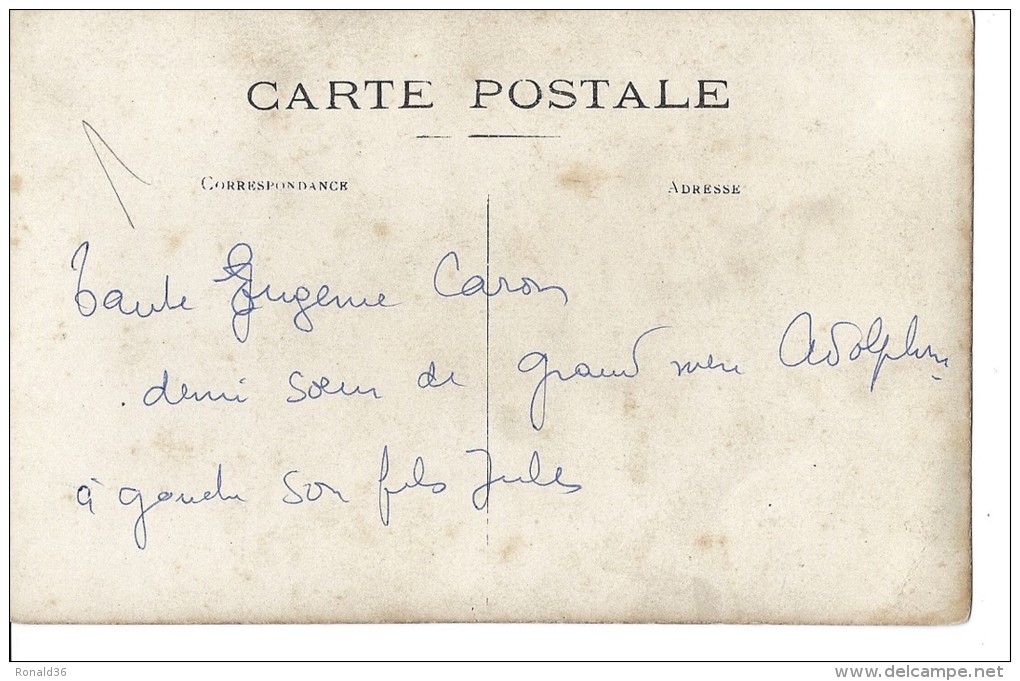 CARTE POSTALE
CORRESPONDANCE
ADRESSE
Tante Eugenie Caron
demi soeur de grand mère Adolphine
à gauche son fils Jules
Ronald36
www.delcampe.net